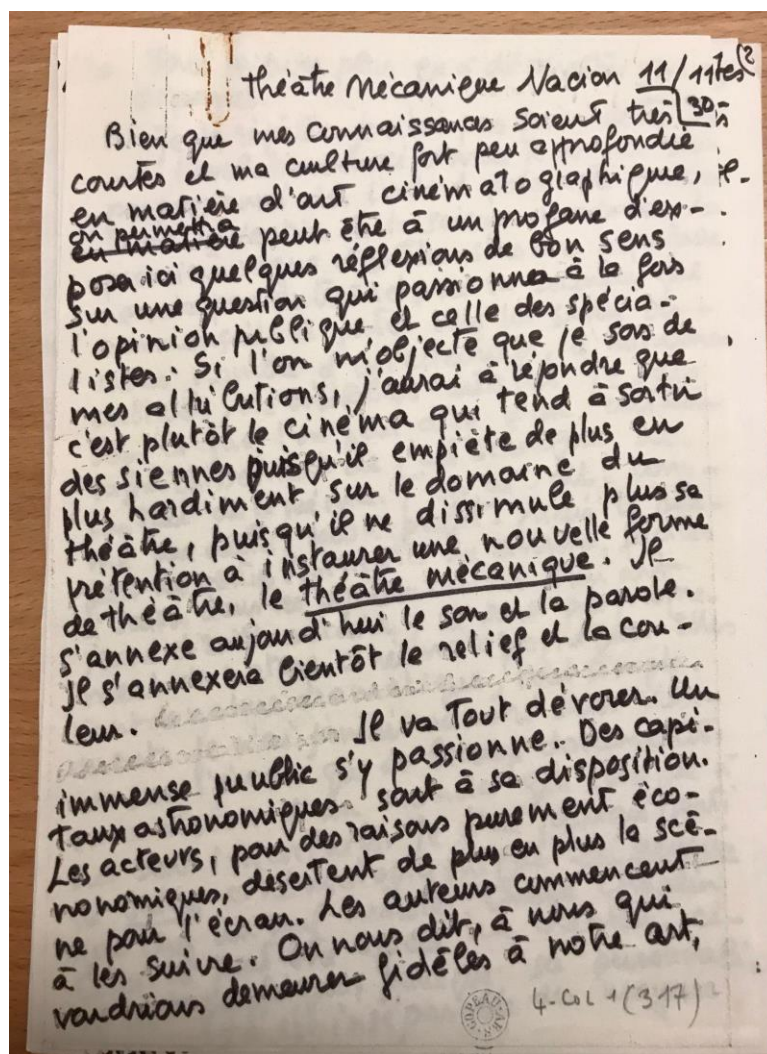 théâtre mécanique Nacion 11/11tes(?
30
Bien que mes connaissances soient très
courtes et ma culture fort peu approfondie
en matière d'art cinématographique,
on permettra
en matière peut être à un profane d'ex-
poser ici quelques réflexions de bon sens
sur une question qui passionne à la fois
l'opinion publique et celle des spécia-
listes. Si l'on m'objecte que je sors de
mes attributions, j'aurai à répondre que
c'est plutôt le cinéma qui tend à sortir
des siennes puisqu'il empiète de plus en
plus hardiment sur le domaine du
théâtre, puisqu'il ne dissimule plus sa
prétention à instaurer une nouvelle forme
de théâtre, le théâtre mécanique. Il
s'annexe aujourd'hui le son et la parole.
Il s'annexera bientôt le relief et la cou-
leur.
Il va tout dévorer. Un
immense public s'y passionne. Des capi-
taux astronomiques sont à sa disposition.
Les acteurs, pour des raisons purement éco-
nomiques, désertent de plus en plus la scè-
ne pour l'écran. Les auteurs commencent
à les suivre. On nous dit, à nous qui
voudrions demeurer fidèles à notre art,
4-COL 1 (317)